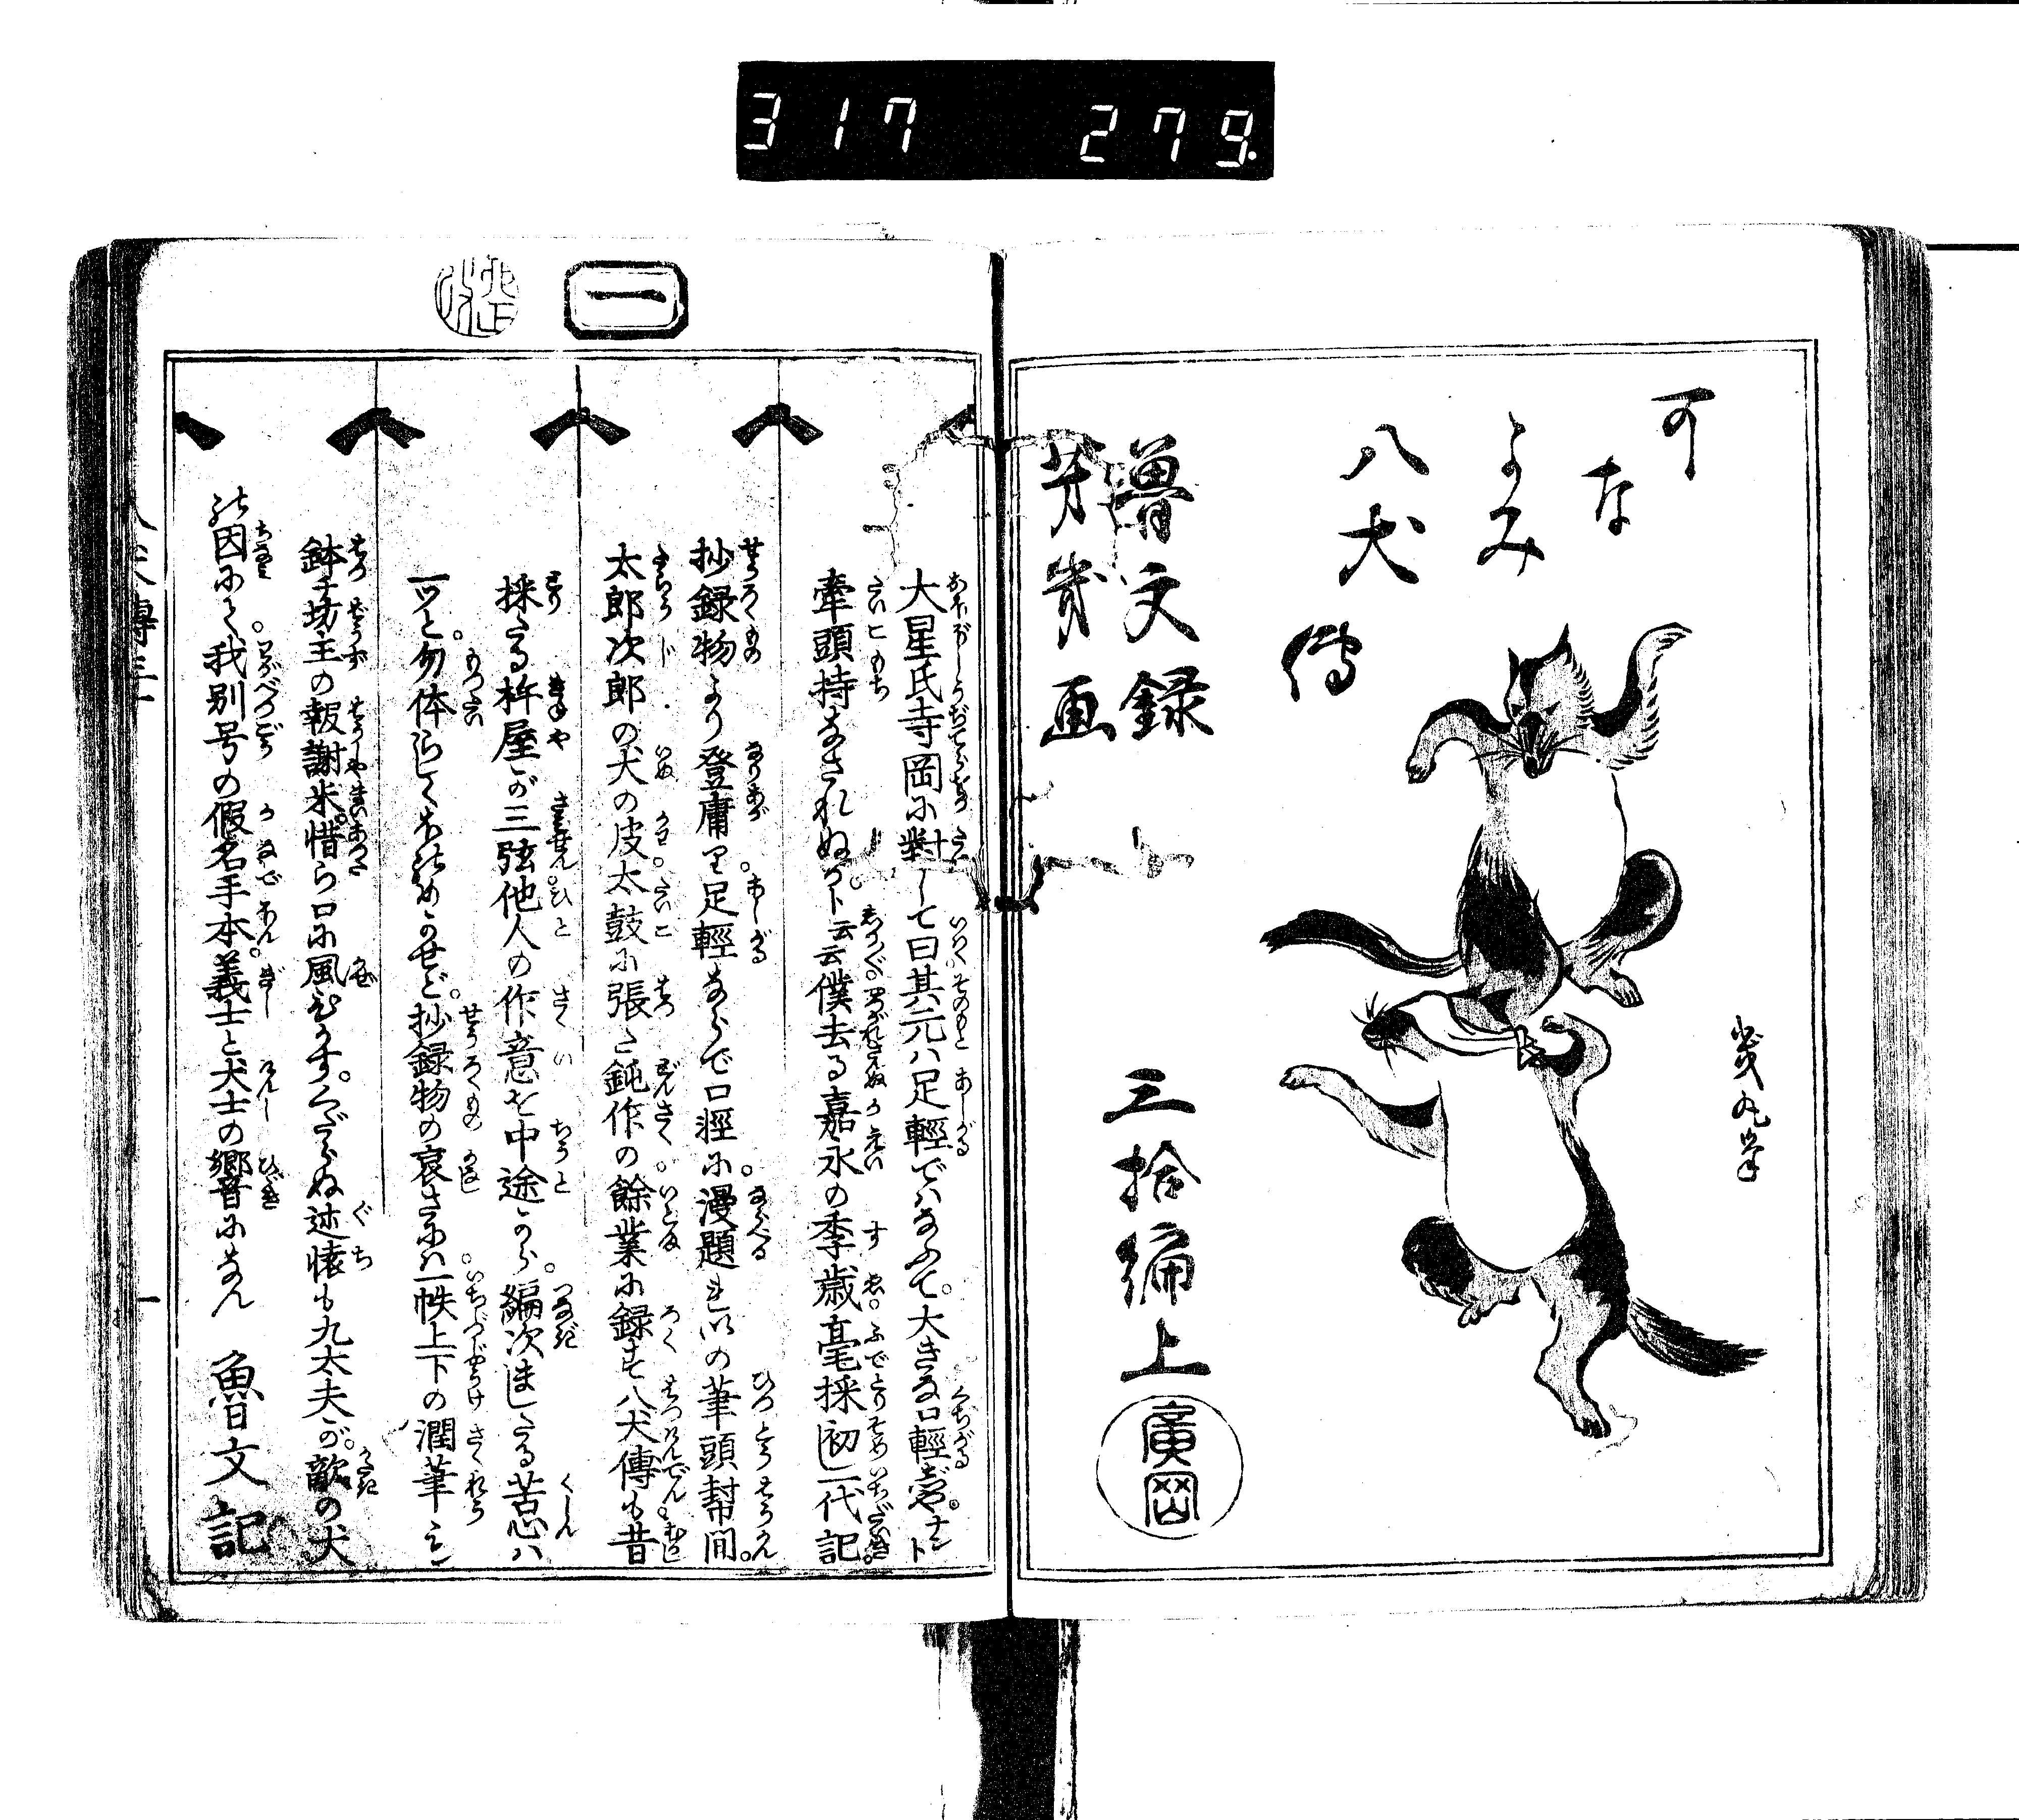 317 279
かな
よみ
八犬
傳
魯文録
芳幾画
三拾編上
廣岡
幾丸筆
一
大星氏寺岡に對して曰其元ハ足輕でハなふて大きな口輕じやナント
牽頭持なされぬか ト云云僕去る嘉永の季歳毫採初し一代記
抄録物より登庸て足輕ならで口輕に漫題きハの筆頭幇間
太郎次郎の犬の皮太鼓に張た鈍作の餘業に録す八犬傳も昔
採たる杵屋が三弦他人の作意を中途から編次ましたる苦心ハ
一ツと勿体らしく 抄録物の哀さにハ一帙上下の潤筆
鉢坊主の報謝米惜ら口に風ひかすくだらぬ述懐も九太夫が敵の犬
因に我別号の假名手本義士と犬士の響になん
魯文記